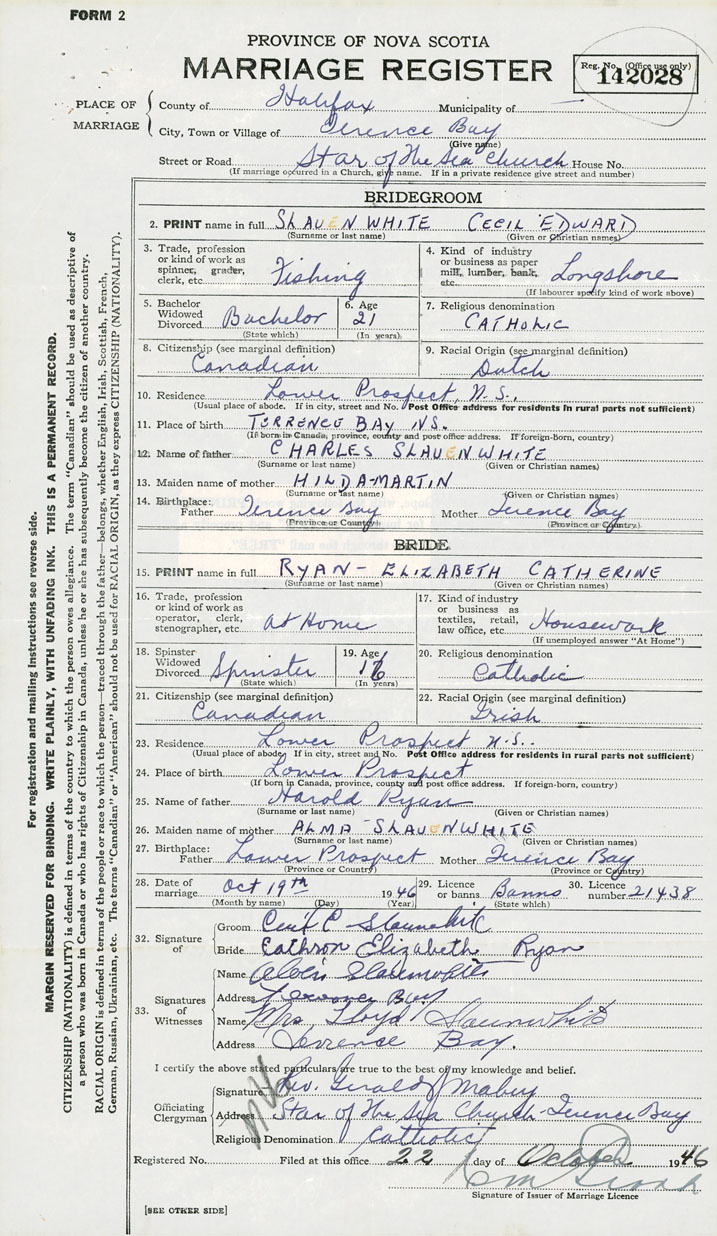 FORM 2
PROVINCE OF NOVA SCOTIA
MARRIAGE REGISTER
Reg. No. (Office use only)
142028
PLACE OF MARRIAGE
County of Halifax Municipality of —
City, Town or Village of Terence Bay
(Give name)
Street or Road Star of The Sea Church House No.
(If marriage occurred in a Church, give name. If in a private residence give street and number)
BRIDEGROOM
2. PRINT name in full SLAUENWHITE CECIL EDWARD
(Surname or last name) (Given or Christian names)
3. Trade, profession or kind of work as spinner, grader, clerk, etc. Fishing
4. Kind of industry or business as paper mill, lumber, bank, etc. Longshore
(If labourer specify kind of work above)
5. Bachelor Widowed Divorced Bachelor
(State which)
6. Age 21
(In years)
7. Religious denomination
CATHOLIC
8. Citizenship (see marginal definition)
Canadian
9. Racial Origin (see marginal definition)
Dutch
10. Residence Lower Prospect, N.S.,
(Usual place of abode. If in city, street and No. Post Office address for residents in rural parts not sufficient)
11. Place of birth TERRENCE BAY NS.
(If born in Canada, province, county and post office address. If foreign-Born, country)
12. Name of father CHARLES SLAUENWHITE
(Surname or last name) (Given or Christian names)
13. Maiden name of mother HILDA-MARTIN
(Surname or last name) (Given or Christian names)
14. Birthplace: Father Terence Bay Mother Terence Bay
(Province or Country) (Province or Country)
BRIDE
15. PRINT name in full RYAN- ELIZABETH CATHERINE
(Surname or last name) (Given or Christian names)
16. Trade, profession or kind of work as operator, clerk, stenographer, etc. at Home
17. Kind of industry or business as textiles, retail, law office, etc. Housework
(If unemployed answer "At Home")
18. Spinster Widowed Divorced Spinster
(State which)
19. Age
(In years)
20. Religious denomination
Catholic
21. Citizenship (see marginal definition)
Canadian
22. Racial Origin (see marginal definition)
Irish
23. Residence Lower Prospect N.S.
(Usual place of abode. If in city, street and No. Post Office address for residents in rural parts not sufficient)
24. Place of birth Lower Prospect
(If born in Canada, province, county and post office address. If foreign-born, country)
25. Name of father Harold Ryan
(Surname or last name) (Given or Christian names)
26. Maiden name of mother ALMA SLAUENWHITE
(Surname or last name) (Given or Christian names)
27. Birthplace: Father Lower Prospect Mother Terence Bay
(Province or Country) (Province or Country)
28. Date of marriage Oct 19th 1946
(Month by name) (Day) (Year)
29. Licence or banns Banns
(State which)
30. Licence number 21438
32. Signature of
Groom Cecil E
Bride Cathron Elizabeth Ryan
33. Signatures of Witnesses
Name
Address Bay
Name Mrs Lloyd Slaunwhite
Address Terrence Bay.
I certify the above stated particulars are true to the best of my knowledge and belief.
Officiating Clergyman
Signature Rev. Gerald Mabey
Address Star of The Sea Church-Terence Bay
Religious Denomination Catholic
Registered No. Filed at this office 22 day of October 1946
Signature of Issuer of Marriage Licence
[SEE OTHER SIDE]
For registration and mailing instructions see reverse side.
MARGIN RESERVED FOR BINDING. WRITE PLAINLY, WITH UNFADING INK. THIS IS A PERMANENT RECORD.
CITIZENSHIP (NATIONALITY) is defined in terms of the country to which the person owes allegiance. The term "Canadian" should be used as descriptive of
a person who was born in Canada or who has rights of Citizenship in Canada, unless he or she has subsequently become the citizen of another country.
RACIAL ORIGIN is defined in terms of the people or race to which the person—traced through the father—belongs, whether English, Irish, Scottish, French,
German, Russian, Ukrainian, etc. The terms "Canadian" or "American" should not be used for RACIAL ORIGIN, as they express CITIZENSHIP (NATIONALITY).